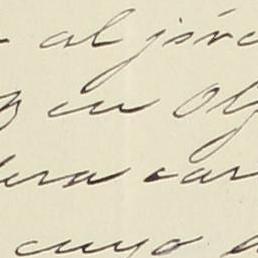 al jóve
en Olj
era car
cuyo a